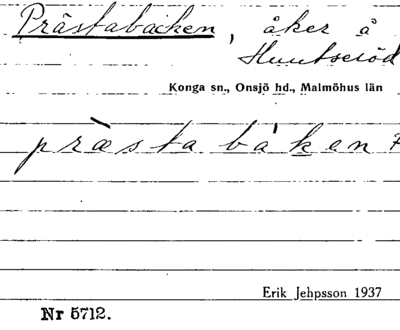 Prästabacken, åker å
Huntseröd
Konga sn., Onsjö hd., Malmöhus län
præ̀sta báken
Erik Jehpsson 1937
Nr 5712.